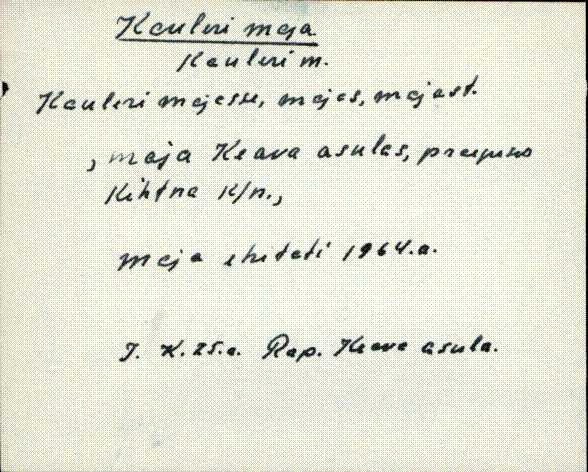 Kauleri maja
Kauleri m.
Kauleri majasse, majas, majast.
, maja Keava asulas, praegune
Kihtna k/n.,
maja ehitati 1964.a.
J. K. 25.a. Rap. Keava asula.